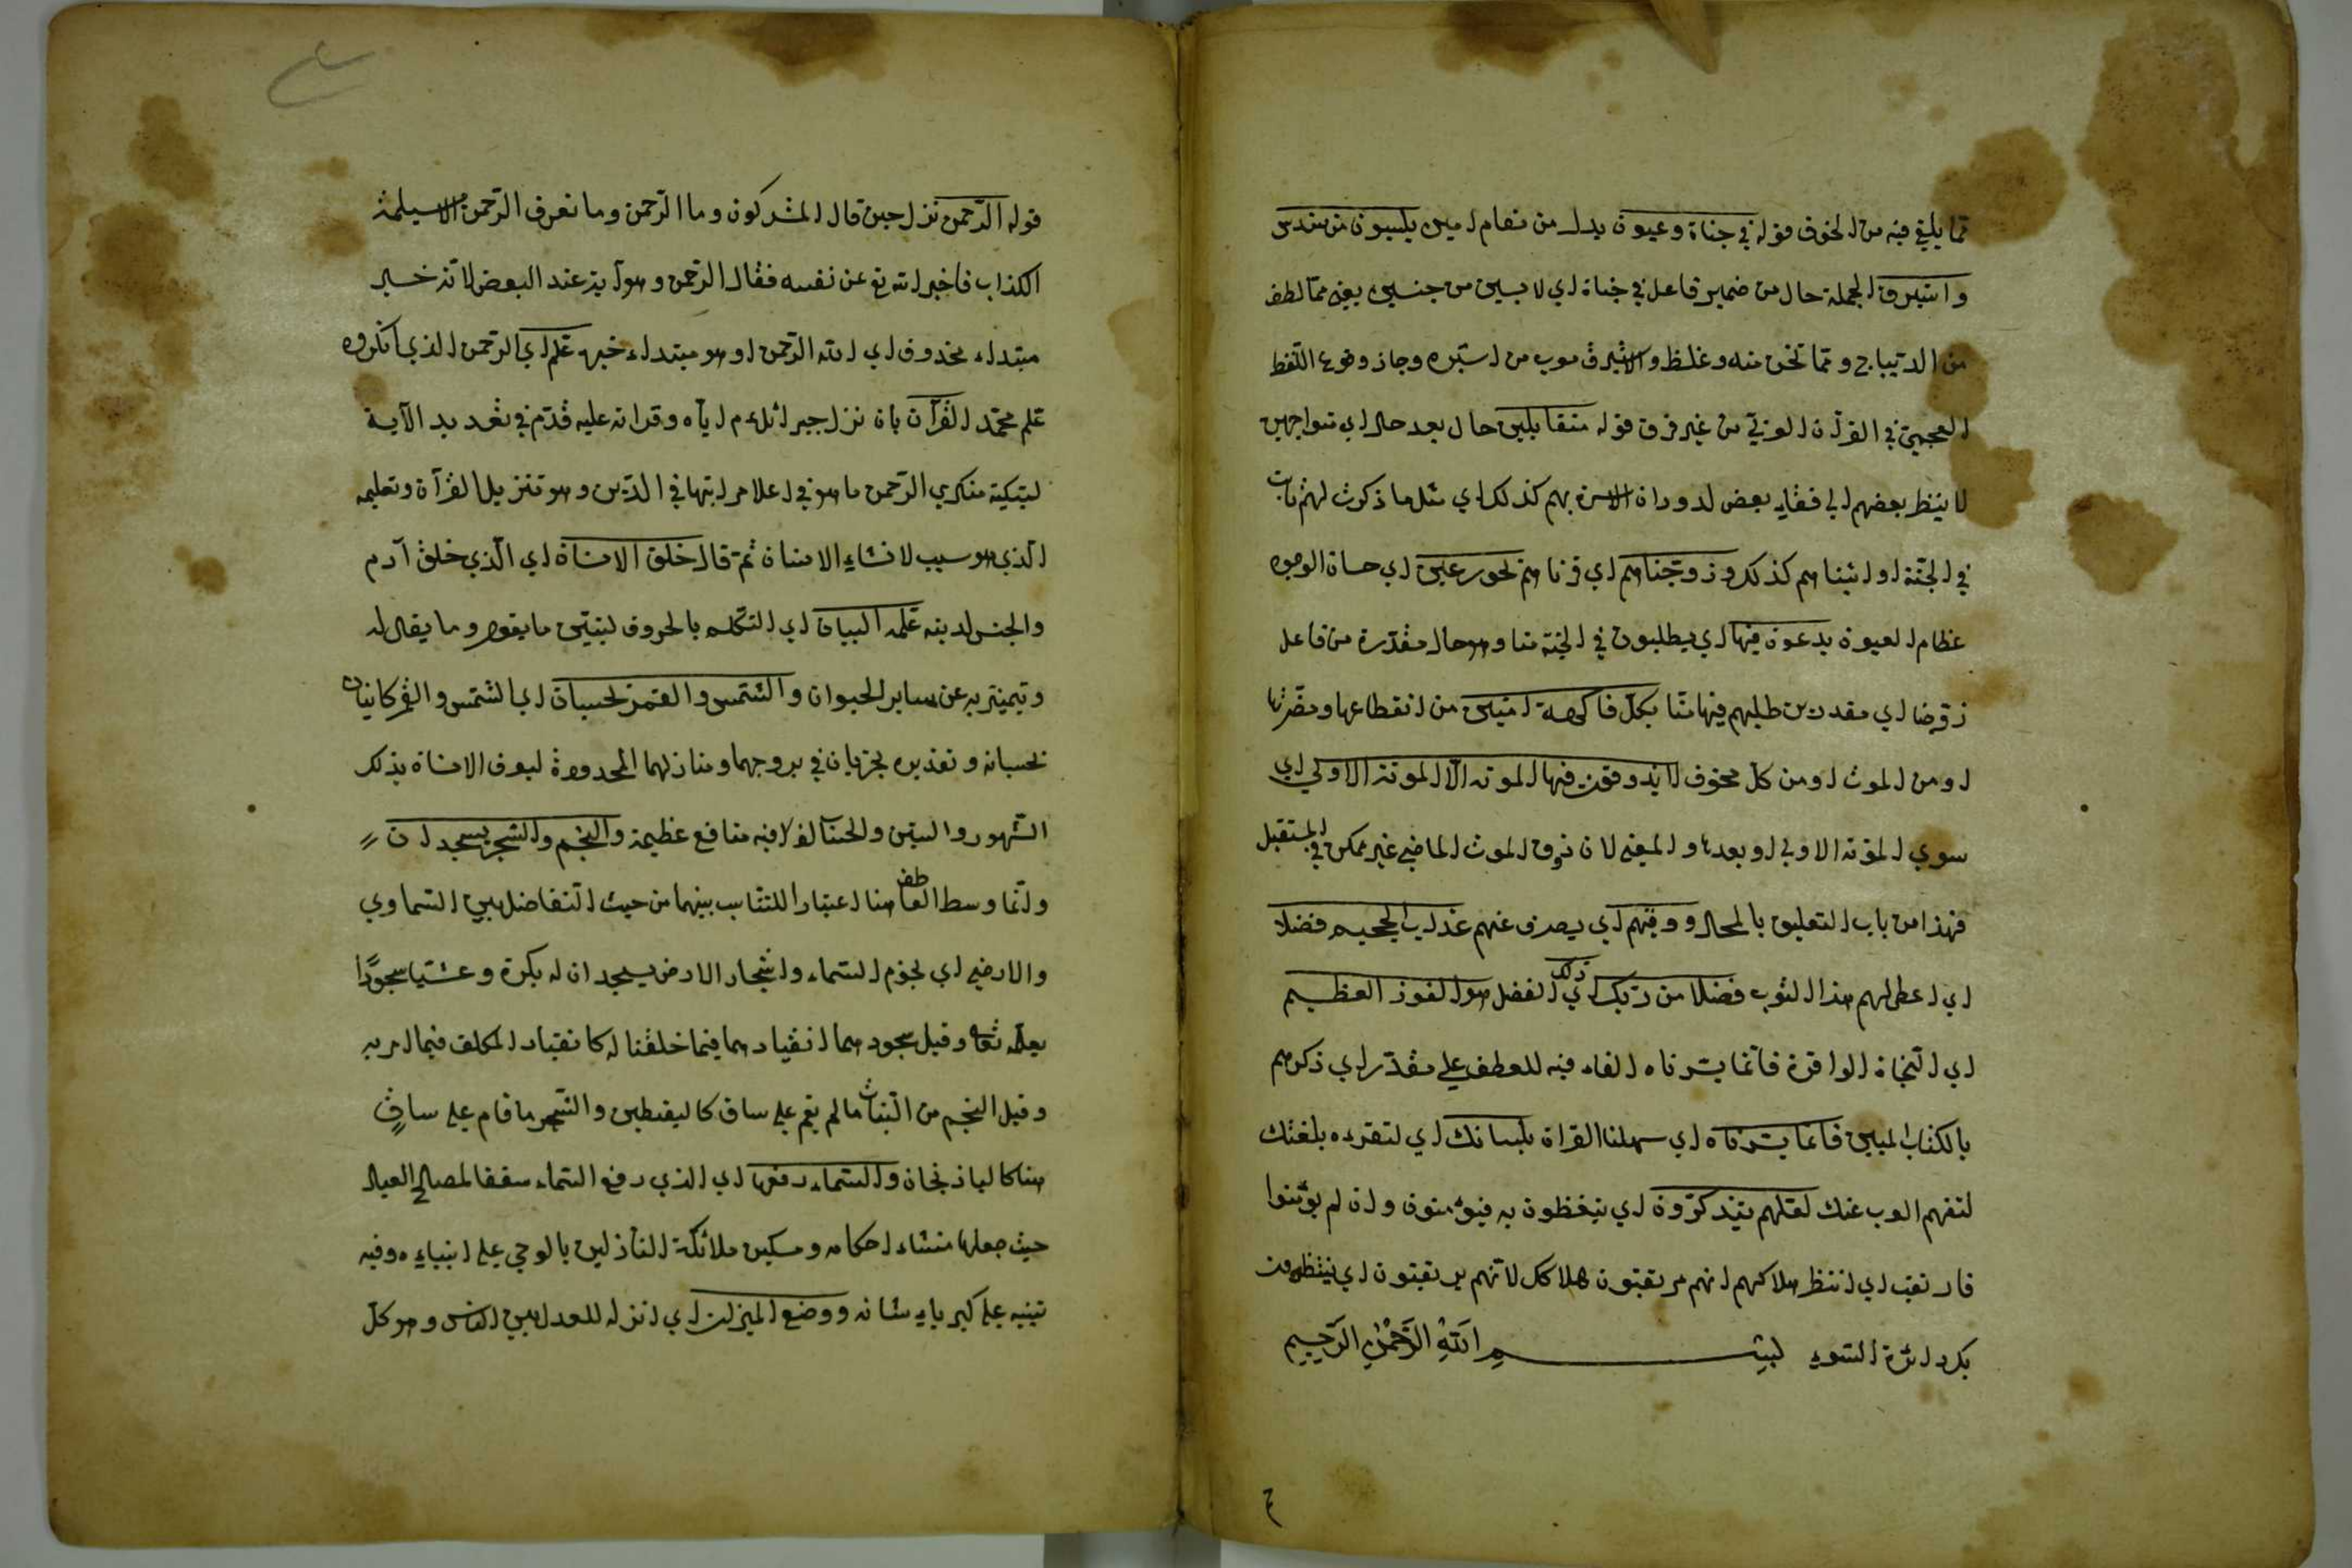 مما يلقي فيه من الخوف قوله في جنات وعيون بدل من مقام امين يلبسون من سندس
واستبرق الجملة حال من ضمير فاعل في جنات اي لابسين من جنسين يعني مما لطف
من الديباج ومما ثخن منه وغلظ والاستبرق معرب من استبره وجاز وقوع اللفظ
العجمي في القرآن العربي من غير فرق قوله متقابلين حال بعد حال اي متواجهين
لا ينظر بعضهم الي قفاء بعض لدوران الاسرة بهم كذلك اي مثل ما ذكرت لهم ثابت
في الجنة او اثبناهم كذلك وزوجناهم اي قرناهم بحور عين اي حسان الوجوه
عظام العيون يدعون فيها اي يطلبون في الجنة منا وهو حال مقدرة من فاعل
زوجنا اي مقدرين طلبهم فيها منا بكل فاكهة امنين من انقطاعها ومضرتها
او من الموت او من كل مخوف لا يذوقون فيها الموتة الا الموتة الاولي اي
سوي الموتة الاولي او بعدها والمعني لان ذوق الموت الماضي غير ممكن في المستقبل
فهذا من باب التعليق بالمحال ووقيهم اي يصرف عنهم عذاب الجحيم فضلا
اي اعطي لهم هذا الثوب فضلا من ربك ذلك اي الفضل هو الفوز العظيم
اي النجاة الوافرة فانما يسرناه الفاء فيه للعطف علي مقدر اي ذكرهم
بالكتاب المبين فانما يسرناه اي سهلنا القراة بلسانك اي لتقرءه بلغتك
لتفهم العرب عنك لعلهم يتذكرون اي يتعظون به فيؤمنون وان لم يؤمنوا
فارتقب اي انتظر هلاكهم انهم مرتقبون هلاكك لانهم يرتقبون اي ينتظرون
بك دائرة السوء بسم الله الرحمن الرحيم
قوله الرحمن نزل حين قال المشركون وما الرحمن وما نعرف الرحمن الا مسيلمة
الكذاب فاخبر الله تع عن نفسه فقال الرحمن وهو آية عند البعض لانه خبر
مبتداء محذوف اي الله الرحمن او هو مبتداء خبره علم اي الرحمن الذي انكروه
علم محمد القرآن بان نزل جبرائلءم اياه وقراته عليه قدم في تعديد الآية
لتبكيت منكري الرحمن ما هو في اعلا مراتبها في الدين وهو تنزيل القرآن وتعليمه
الذي هو سبب لانشاء الانسان ثم قال خلق الانسان اي الذي خلق آدم
والجنس لدينه علمه البيان اي التكلم بالحروف ليتبين ما يقول وما يقال له
وتميز به عن ساير الحيوان والشمس والقمر بحسبان اي الشمس والقمر كائنان
بحسبانه وتقديره يجريان في بروجهما ومنازلهما المحدودة ليعرف الانسان بذلك
الشهور والسنين والحساب فيه منافع عظيمة والنجم والشجر يسجدان
وانما وسط العاطف هنا اعتبارا للتناسب بينهما من حيث التفاضل بين السماوي
والارضي اي نجوم السماء واشجار الارض يسجدان له بكرة وعشيا سجودا
يعلمه تعا وقيل سجودهما انقيادهما فيما خلقنا له كانقياد المكلف فيما امر به
وقيل النجم من النبات ما لم يقم علي ساق كاليقطين والشجر ما قام علي ساق
هنا كالباذنجان والسماء رفعها اي الذي رفع السماء سقفا لمصالح العباد
حيث جعلها منشاء احكامه ومسكن ملائكة النازلين بالوحي علي انبياءه وفيه
تنبيه علي كبرياء شانه ووضع الميزان اي انزله للعدل بين الناس وهو كل